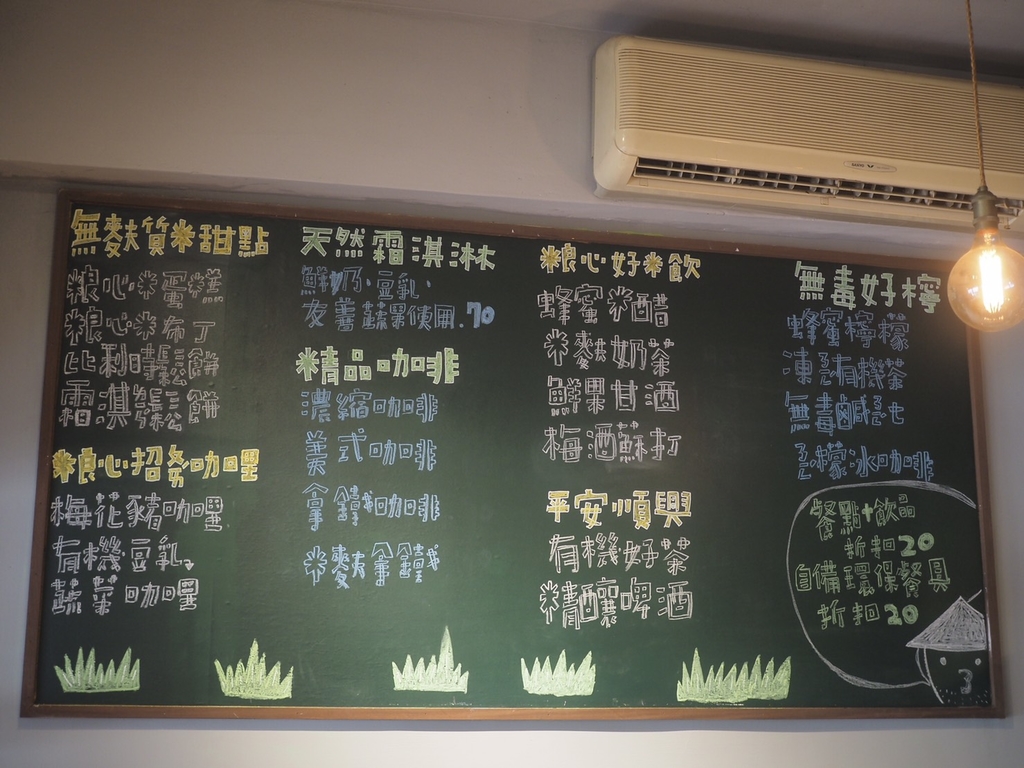 無麩質米甜點
粮心米蛋糕
粮心米布丁
比利時鬆餅
霜淇鬆餅
粮心招努咖哩
梅花豬咖哩
有機豆乳
蔬菜咖哩
天然霜淇淋
鮮奶、豆乳、
友善蔬果使用.70
精品咖啡
濃縮咖啡
美式咖啡
拿鐵咖啡
米麥拿鐵
粮心好米飲
蜂蜜米醋
米麩奶茶
鮮果甘酒
梅酒蘇打
平安順興
有機好茶
精釀啤酒
無毒好檸
蜂蜜檸檬
凍檸有機茶
無毒鹹檸七
檸檬冰咖啡
餐點+飲品
折扣20
自備環保餐具
折扣20